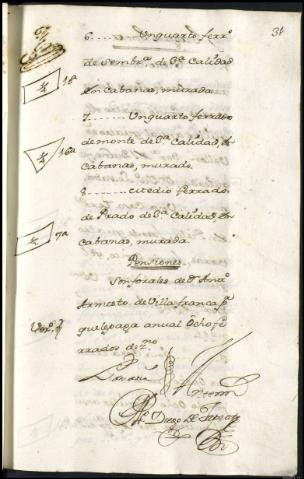 31
6 Unquarto ferr.o
de Sembr.a, de 3.a Calidad
En Cabanas, murada
1/4 18
7 Unquarto ferrado
de monte de 3.a Calidad, en
Cabanas, murado
1/4 16a
8 medio ferrado
de Prado de 3.a Calidad, en
Cabanas, murada
1/2 7a
Pensiones
Son forales de d.n Ana.o
Armesto de Villafranca p.r
quelepaga anual Ocho fe
rrados de z.no
Diego